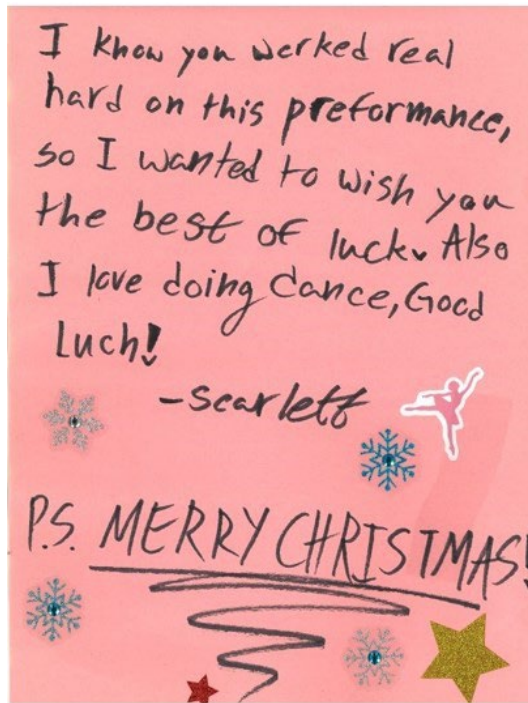 I know you worked real
hard on this preformance,
so I wanted to wish you
the best of luck. Also
I love doing dance, Good
Luch!
-Scarlett
P.S. MERRY CHRISTMAS!